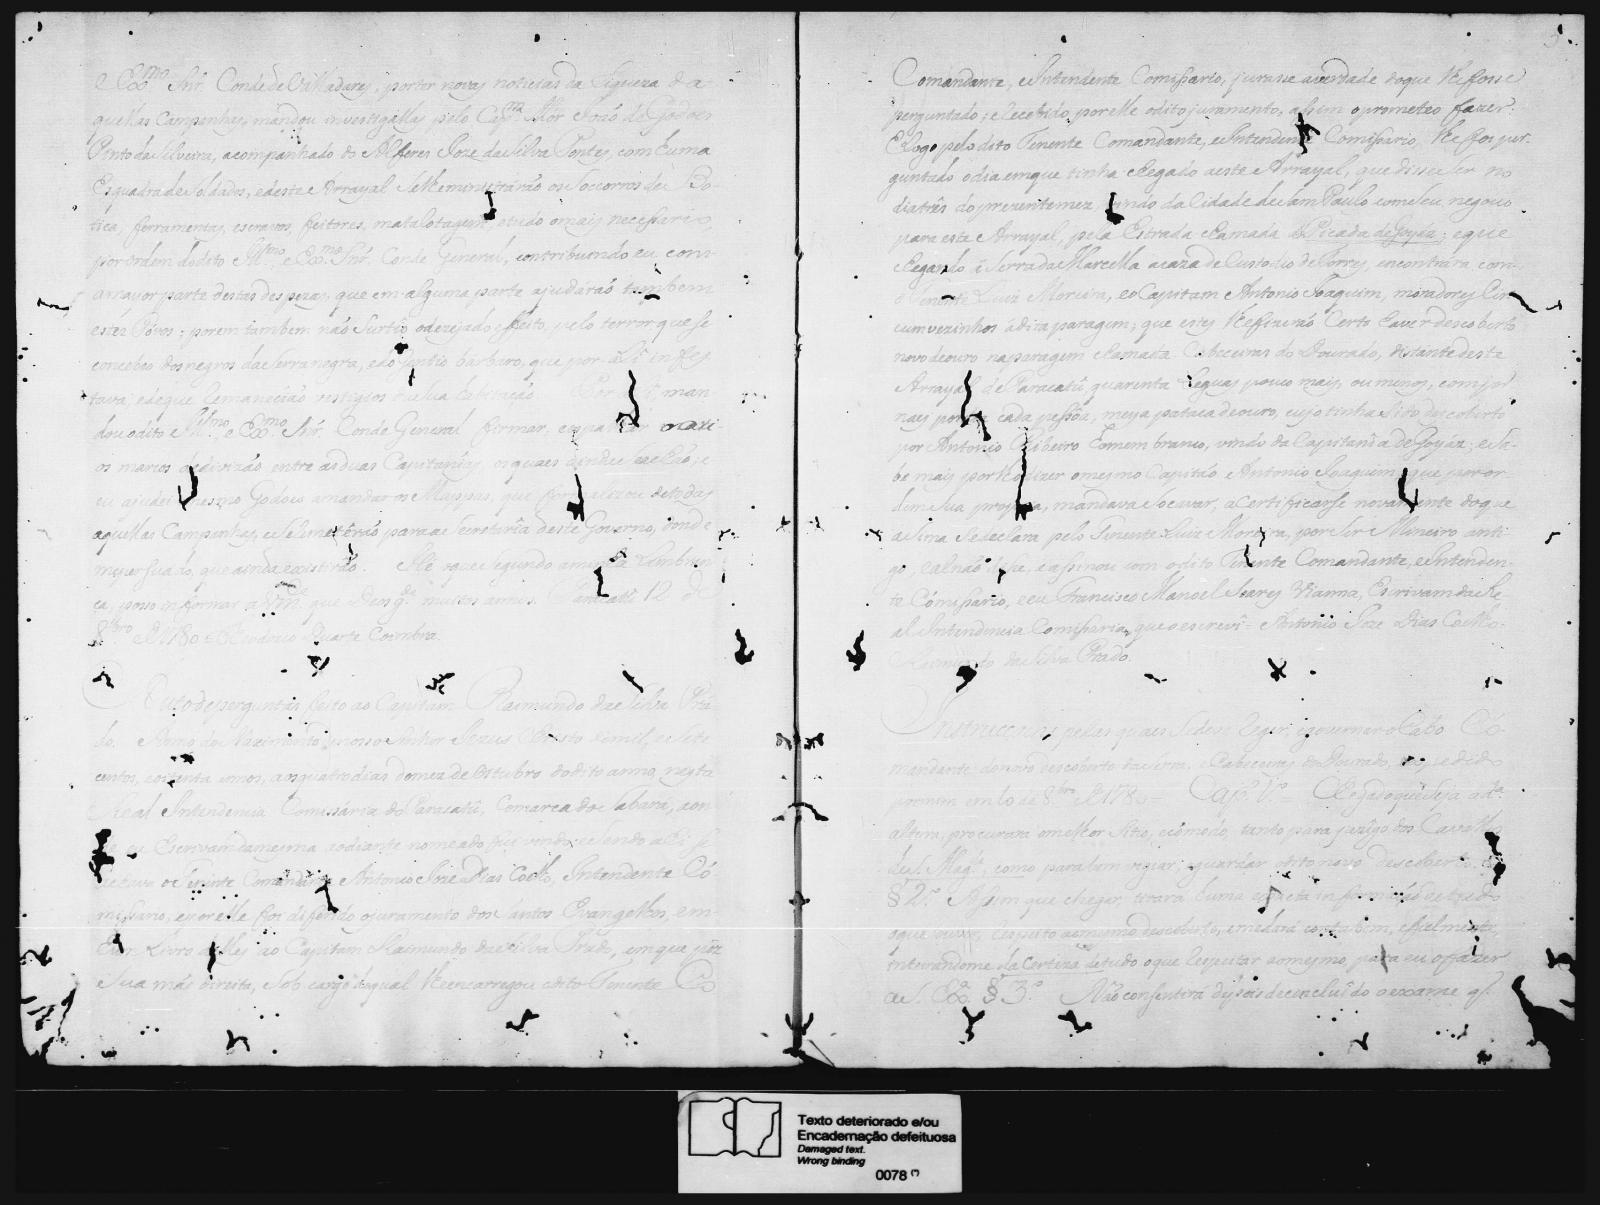 e Exmo Snr. Conde de Valladares, por ter novas noticias da riqueza da-
quellas Campanhas, mandou investigallas pelo Capm Mor João de Godoes
Pinto da Silveira, acompanhado do Alferes Joze da Silva Pontes, com huma
Esquadra de Soldados, e deste Arrayal se lhe ministrárão os Soccorros de Bo-
tica, ferramentas, escravos, feitores, matalotagem, e tudo o mais necessario,
por ordem do dito Illmo e Exmo Snr. Conde General, contribuindo eu com
a mayor parte destas despezas, que em alguma parte ajudárão tambem
estes Póvos: porem tambem não surtio o dezejado effeito, pelo terror que se
concebeo dos negros da Serra negra, e do gentio bárbaro, que por ali infes-
tava, e de que remanecião vestigios da sua habitação. Por man-
dou o dito Illmo e Exmo Snr. Conde General firmar
os marcos da divizão entre as duas Capitanías, os quaes ainda se
eu ajudei mesmo Godoes a mandar os Mappas, que formalizou de todas
aquellas Campanhas, e se remetêrão para a Secretaria deste Governo, donde
me persuado, que ainda existirão. He o que segundo a minha lembran-
ça, posso informar a Vmce que Deos gde muitos annos. Paracatú 12 de
8bro de 1780 = Theodozio Duarte Coimbra.
Auto de perguntas feito ao Capitam Raimundo da Silva Pra-
do. Anno do Nascimento de nosso Senhor Jezus Christo de mil, e sete
centos, e oitenta annos, aos quatro dias do mez de Outubro do dito anno, nesta
Real Intendencia Comissária do Paracatú, Comarca do Sabará, aon-
de eu Escrivam da mesma ao diante nomeado fui vindo, e sendo ahi se
achava o Tenente Comandante Antonio Joze Dias Coelho, Intendente Co-
missario, e por elle foi diferido o juramento dos Santos Evangelhos, em
hum Livro delles ao Capitam Raimundo da Silva Prado, em que pôz
a Sua mão direita, Sob cargo do qual lhe encarregou o dito Tenente Co
Comandante, e Intendente Comissario, jurasse a verdade do que lhe fosse
perguntado; e recebido por elle o dito juramento, assim o prometeo fazer.
E logo pelo dito Tenente Comandante, e Intendente Comissario, lhe foi per-
guntado o dia em que tinha chegado a este Arrayal, que disse ser no
dia trêz do prezente mez, vindo da Cidade de Sam Paulo com seu negocio
para este Arrayal, pela Estrada chamada a Picada de Goyáz; e que
chegando á Serra da Marcella a caza de Custodio de Torres, encontrára com
o Tenente Luiz Moreira, e o Capitam Antonio Joaquim, moradores Cir-
cumvezinhos á dita paragem; que estes lhe fizerão certo haver descoberto
novo de ouro na paragem chamada Cabeceiras do Dourado, distante deste
Arrayal de Paracatú quarenta leguas pouco mais, ou menos, com jor-
naes por cada pessôa, meya pataca de ouro, cujo tinha sido descoberto
por Antonio Ribeiro homem branco, vindo da Capitanía de Goyáz; e sa-
be mais por lho dizer o mesmo Capitão Antonio Joaquim, que por or-
dem sua propria, mandava socavar, a certificarse novamente do que
asima se declara pelo Tenente Luiz Moreira, por ser Mineiro anti-
go, e al não disse e assinou com o dito Tenente Comandante, e Intenden-
te Comissario, e eu Francisco Manoel Soares Vianna, Escrivam da Re-
al Intendencia Comissaria, que o escrevi = Antonio Joze Dias Coelho.
Raimundo da Silva Prado.
Instrucções pelas quaes se deve reger, e governar o Cabo Co-
mandante do novo descoberto da Serra, e Cabeceiras do Dourado, expedido
por mim em 10 de 8bro de 1780 = Capo 1.º = Chegado que seja a da
altura, procurará o melhor sitio, e cómodo, tanto para jazigo dos Cavallos
de S. Magde como para bem vigiar, e guardar o dito novo descoberto.
§ 2.º Assim que chegar, tirará huma exacta informação de tudo
o que ouver, respeito ao mesmo descoberto, e me dará conta bem, e fielmente,
inteirandome da certeza de tudo o que respeitar ao mesmo, para eu o fazer
a S. Exa. § 3.º Não consentirá depois de concluîdo o exame q.
Texto deteriorado e/ou
Encadernação defeituosa
Damaged text.
Wrong binding
0078